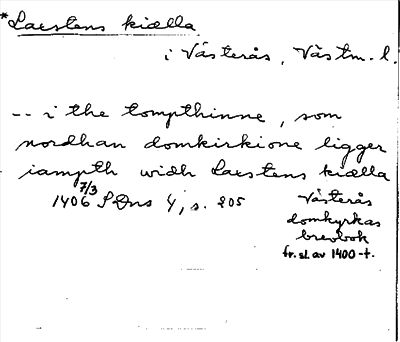 *Laestens kiælla
i Västerås, Västm. l.
-- i the tompthinne, som
nordhan domkirkione ligger
iampth widh Laestens kiælla
7/3
1406 SDns 4, s. 205
Västerås
domkyrkas
brevbok
fr. sl. av 1400-t.